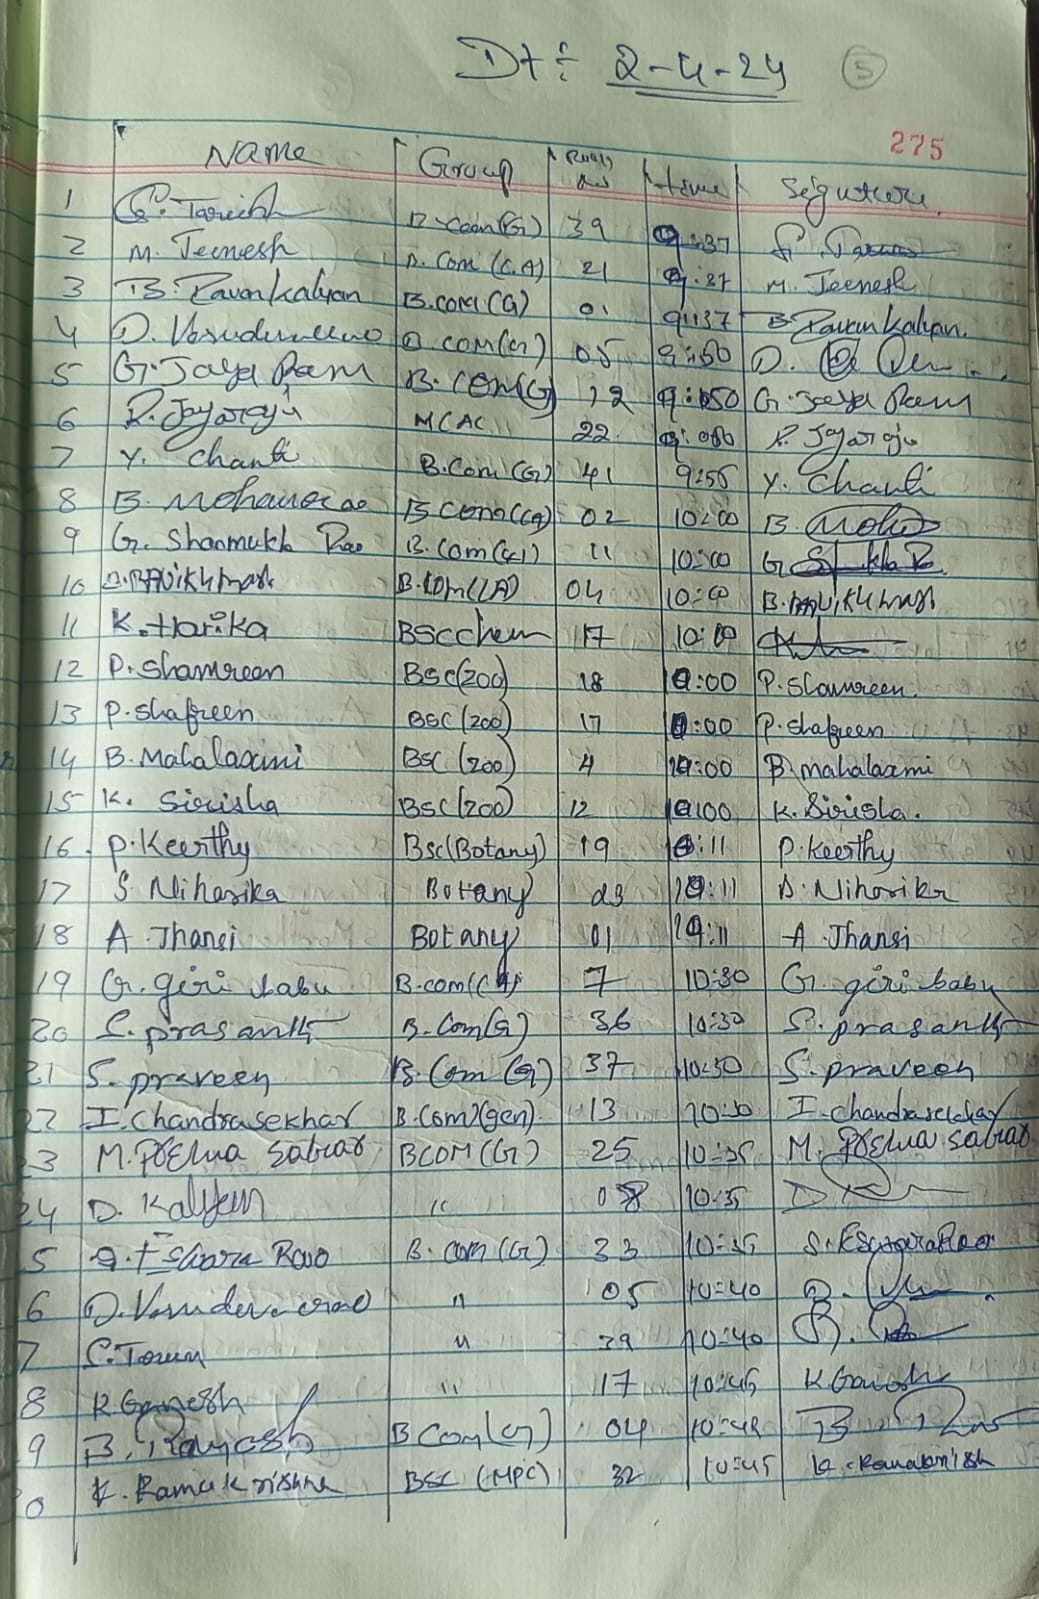 Dt÷ 2-4-24 5
275
Name Group Roll No time Signature
1 B.com(G) 39 9:37
2 M. Jeenesh B.Com (C.A) 21 9:37 M. Jeenesh
3 B. Pavankalyan B.com(G) 01 9:37 B. Pavan Kalyan.
4 D. Vasudevarao B.com(G) 05 9:50 D.
5 G. Jaya Ram B.com(G) 12 9:50 G. Jaya Ram
6 R. Jayaraju MCAC 22 R. Jayaraju
7 Y. Chanti B.Com(G) 41 9:55 Y. Chanti
8 B. Mohanarao B Com(CA) 02 10:00 B. Mohan
9 G. Shanmukh Rao B.Com 11 10:00 G
10 B. RAVIKUMAR B.COM(CA) 04 10:00 B. RAVIKUMAR
11 K. Harika BSC chem 17 10:00
12 P. Shamreen BSc(200) 18 10:00 P. Shamreen.
13 P. Shafreen BSC(200) 17 10:00 P. Shafreen
14 B. Mahalaxmi BSC (200) 4 10:00 B. mahalaxmi
15 K. Sirisha BSC(200) 12 10:00 K. Sirisha.
16 P. Keerthy Bsc(Botany) 19 10:11 P. Keerthy
17 S. Niharika Botany 23 10:11 S. Niharika
18 A. Jhansi Botany 01 10:11 A. Jhansi
19 G. giri babu B.com(CA) 7 10:30 G. giri babu
20 S. prasanth B.Com(G) 36 10:30 S. prasanth
21 S. praveen B.Com (G) 37 10:30 S. praveen
22 I. Chandrasekhar B.Com(gen) 13 10:30 I. Chandrasekhar
23 M. Prema Sabrao BCOM (G) 25 10:35 M. Prema Sabrao
24 D. Kalyan " 08 10:35 D
5 S. Eshwara Rao B.com(G) 33 10:35
6 D. Vasudevarao " 05 10:40 D.
7 " 39 10:40
8 K Ganesh " 17 10:45 K Ganesh
9 B. B Com(G) 04 10:45 B.
0 K. Ramakrishna BSC (MPC) 32 10:45 K. Ramakrish